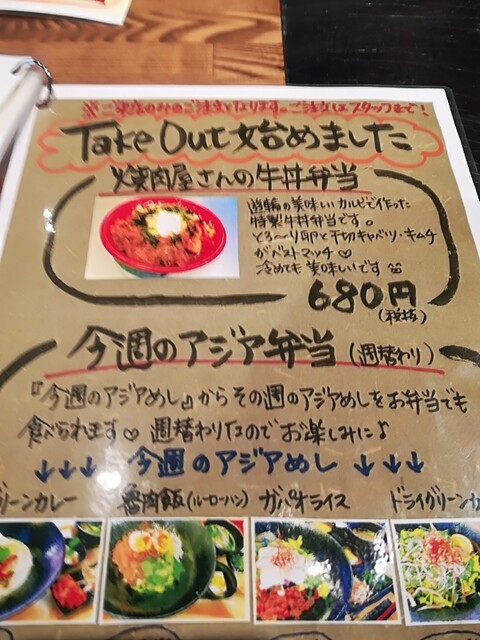 ※ご来店のみのご注文となります。ご注文はスタッフまで!
Take Out 始めました
焼肉屋さんの牛丼弁当
の美味しいカルビで作った
特製牛丼弁当です。
とろ〜り卵と千切キャベツ・キムチ
がベストマッチ♡
冷めても美味しいです
680円
(税抜)
今週のアジア弁当(週替わり)
『今週のアジアめし』からその週のアジアめしをお弁当でも
食べられます♡ 週替わりなのでお楽しみに♪
↓↓↓ 今週のアジアめし ↓↓↓
リーンカレー 魯肉飯(ルーローハン) ガパオライス ドライグリーンカ